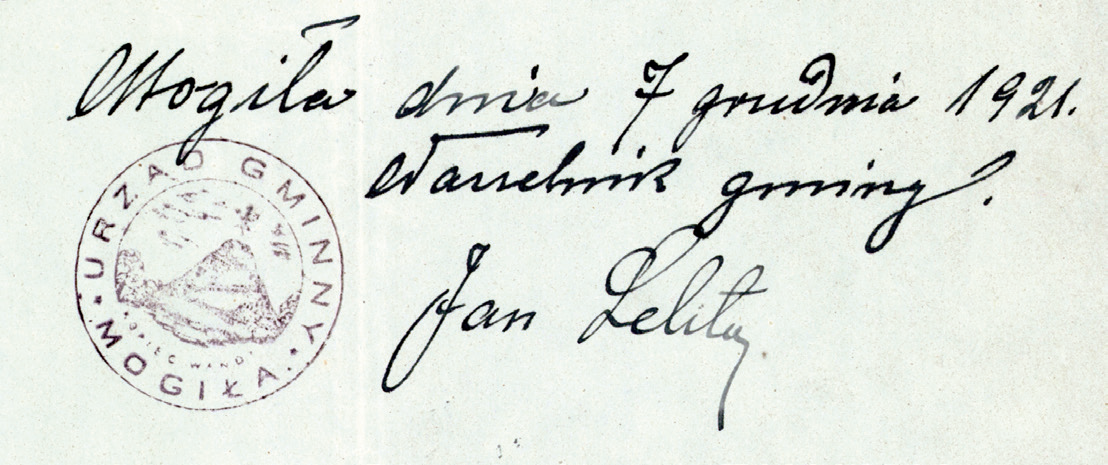 Mogiła dnia 7 grudnia 1921.
Naczelnik gminy.
Jan
URZĄD GMINNY
MOGIŁA
KOPIEC WANDY